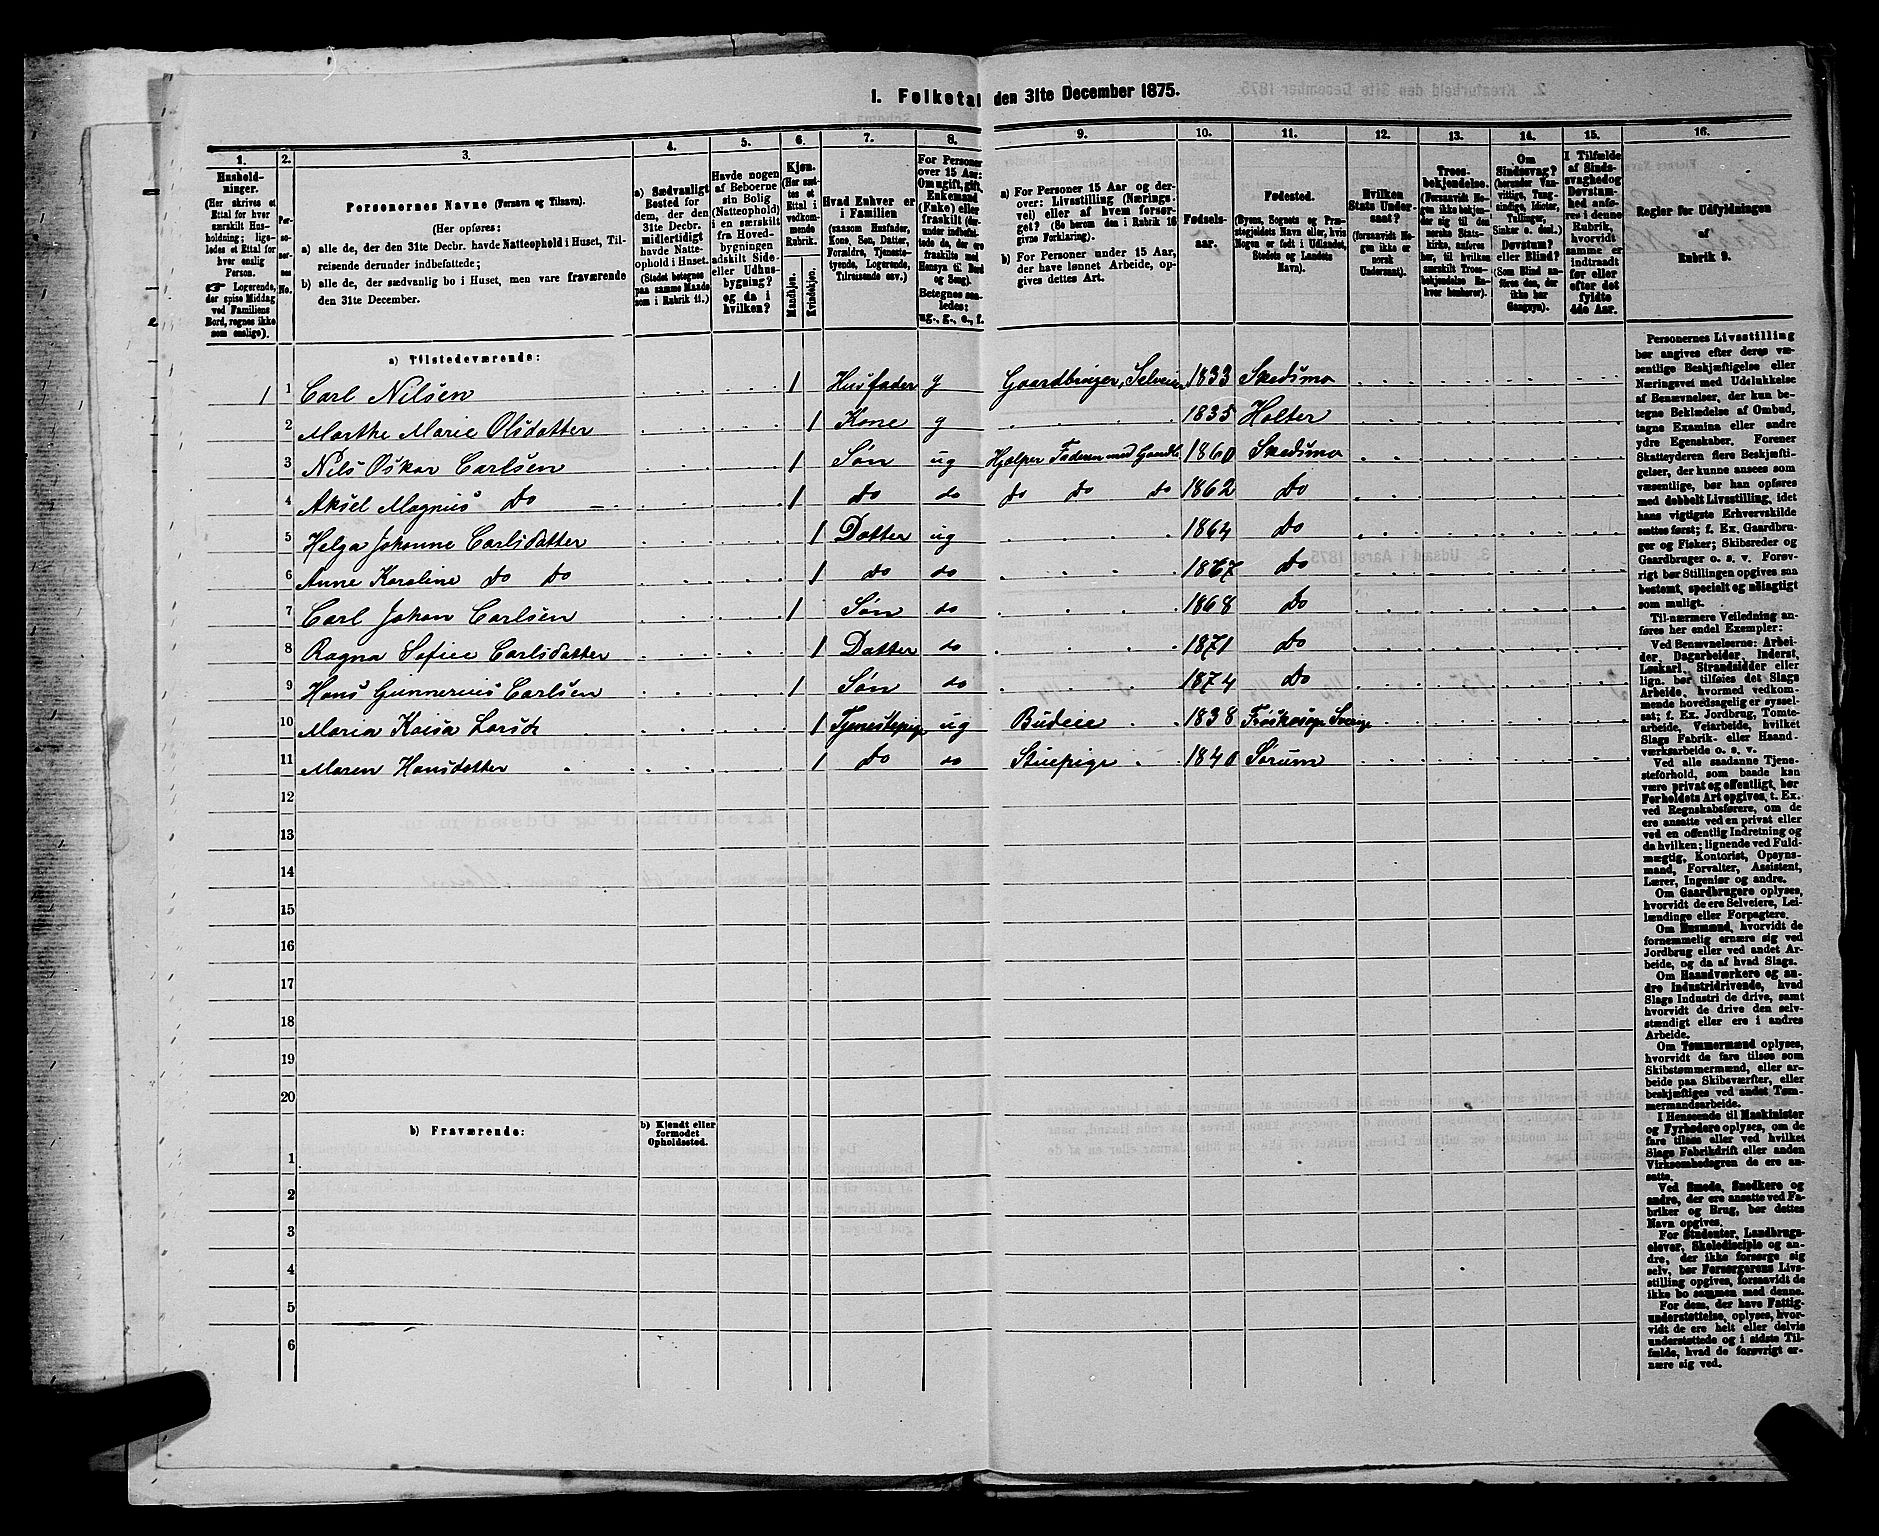 I. Folketal den 31te December 1875.
1. 2. 3. 4. 5. 6. 7. 8. 9. 10. 11. 12. 13. 14. 15. 16.
Hushold-
ninger.
(Her skrives et
Ettal for hver
særskilt Hus-
holdning; lige-
ledes et Ettal for
hver enslig
Person.
Logerende,
der spise Middag
ved Familiens
Bord, regnes ikke
som enslige).
Per-
so-
ner-
nes
No.
Personernes Navne (Fornavn og Tilnavn).
(Her opføres:
a) alle de, der den 31te Decbr. havde Natteophold i Huset, Til-
reisende derunder indbefattede;
b) alle de, der sædvanlig bo i Huset, men vare fraværende
den 31te December.
a) Sædvanligt
Bosted for
dem, der den
31te Decbr.
midlertidigt
havde Natte-
ophold i Huset.
(Stedet betegnes
paa samme Maade
som i Rubrik 11.)
Havde nogen
af Beboerne
sin Bolig
(Natteophold)
i en særskilt
fra Hoved-
bygningen
adskilt Side-
eller Udhus-
bygning?
og da i
hvilken?
Kjøn.
(Her sæt-
tes et
Ettal i
vedkom-
mende
Rubrik.
Mandkjøn.
Kvindekjøn.
Hvad Enhver er
i Familien
(saasom Husfader,
Kone, Søn, Datter,
Forældre, Tjeneste-
tyende, Logerende,
Tilreisende osv.)
For Personer
over 15 Aar:
Om ugift, gift,
Enkemand
(Enke) eller
fraskilt (her-
under indbefat-
tede de, der ere
fraskilte med
Hensyn til Bord
og Seng).
Betegnes saa-
ledes:
ug., g., e., f.
a) For Personer 15 Aar og der-
over: Livsstilling (Nærings-
vei) eller af hvem forsør-
get. (Se herom den i Rubrik 16
givne Forklaring).
b) For Personer under 15 Aar,
der have lønnet Arbeide, op-
gives dettes Art.
Fødsels-
aar.
Fødested.
(Byens, Sognets og Præ-
stegjeldets Navn eller, hvis
Nogen er født i Udlandet,
Stedets og Landets
Navn).
Hvilken
Stats Under-
saat?
(forsaavidt No-
gen ikke er
norsk
Undersaat).
Troes-
bekjendelse.
(Forsaavidt No-
gen ikke bekjen-
der sig til den
norske Stats-
kirke, anføres
her, til hvilken
særskilt Troes-
bekjendelse En-
hver henhører).
Om
Sindssvag?
(herunder Van-
vittige, Tung-
sindige, Idioter,
Tullinger,
Sinker o. desl.)
Døvstum?
eller Blind?
(Som Blind an-
føres den, der
ikke har
Gangsyn).
I Tilfælde
af Sinds-
svaghed og
Døvstum-
hed anfø-
res i denne
Rubrik,
hvorvidt
samme er
indtraadt
før eller
efter det
fyldte
4de Aar.
Regler for Udfyldningen
af
Rubrik 9.
a) Tilstedeværende:
1 1 Carl Nilsen 1 Husfader g Gaardbruger, Selveier 1833 Skedsmo
2 Marthe Marie Olsdatter 1 Kone g 1835 Holter
3 Nils Oskar Carlsen 1 Søn ug Hjælper Faderen med Gaardb. 1860 Skedsmo
4 Aksel Magnus do 1 do do do do do 1862 do
5 Helga Johanne Carlsdatter 1 Datter ug 1864 do
6 Anne Karoline do do 1 do do 1867 do
7 Carl Johan Carlsen 1 Søn do 1868 do
8 Ragna Sofie Carlsdatter 1 Datter do 1871 do
9 Hans Gunnerius Carlsen 1 Søn do 1874 do
10 Maria Kaisa Larsd 1 Tjenestepige ug Budeie 1838 Sverige
11 Maren Hansdatter 1 do do Stuepige 1840 Sørum
12
13
14
15
16
17
18
19
20
b) Fraværende:
b) Kjendt eller
formodet
Opholdssted.
1
2
3
4
5
6
Personernes Livsstilling
bør angives efter deres væ-
sentlige Beskjæftigelse eller
Næringsvei med Udelukkelse
af Benævnelser, der kun be-
tegne Beklædelse af Ombud,
tagne Examina eller andre
ydre Egenskaber. Forener
Skatteyderen flere Beskjæfti-
gelser, der kunne ansees som
væsentlige, bør han opføres
med dobbelt Livsstilling, idet
hans vigtigste Erhvervskilde
sættes først; f. Ex. Gaardbru-
ger og Fisker; Skibsreder og
Gaardbruger o. s. v. Forøv-
rigt bør Stillingen opgives saa
bestemt, specielt og nøiagtigt
som muligt.
Til nærmere Veiledning an-
føres her endel Exempler:
Ved Benævnelserne: Arbei-
der, Dagarbeider, Inderst,
Løskarl, Strandsidder eller
lign. bør tilføies det Slags
Arbeide, hvormed vedkom-
mende hovedsagelig er syssel-
sat; f. Ex. Jordbrug, Tomte-
arbeide, Veiarbeide, hvilket
Slags Fabrik- eller Haand-
værksarbeide o. s. v.
Ved alle saadanne Tjene-
steforhold, som baade kan
være privat og offentligt, bør
Forholdets Art opgives, t. Ex.
ved Regnskabsførere, om de
ere ansatte ved en privat eller
ved en offentlig Indretning og
da hvilken; lignende ved Fuld-
mægtig, Kontorist, Opsyns-
mand, Forvalter, Assistent,
Lærer, Ingeniør og andre.
Om Gaardbrugere oplyses,
hvorvidt de ere Selveiere, Lei-
lændinge eller Forpagtere.
Om Husmænd, hvorvidt de
fornemmelig ernære sig ved
Jordbrug eller ved andet Ar-
beide, og da af hvad Slags.
Om Haandværkere og an-
dre Industridrivende, hvad
Slags Industri de drive, samt
hvorvidt de drive den selv-
stændigt eller ere i andres
Arbeide.
Om Tømmermænd oplyses,
hvorvidt de fare tilsøs som
Skibstømmermænd, eller ar-
beide paa Skibsværfter, eller
beskjæftiges ved andet Tøm-
mermandsarbeide.
I Henseende til Maskinister
og Fyrbødere oplyses, om de
fare tilsøs eller ved hvilket
Slags Fabrikdrift eller anden
Virksomhedsgren de ere an-
satte.
Ved Smede, Snedkere og
andre, der ere ansatte ved Fa-
briker og Brug, bør dettes
Navn opgives.
For Studenter, Landbrugs-
elever, Skoledisciple og an-
dre, der ikke forsørge sig
selv, bør Forsørgerens Livs-
stilling opgives, forsaavidt de
ikke bo sammen med denne.
For dem, der have Fattig-
understøttelse, oplyses, hvor-
vidt de ere helt eller delvis
understøttede og i sidste Til-
fælde, hvad de forøvrigt er-
nære sig ved.